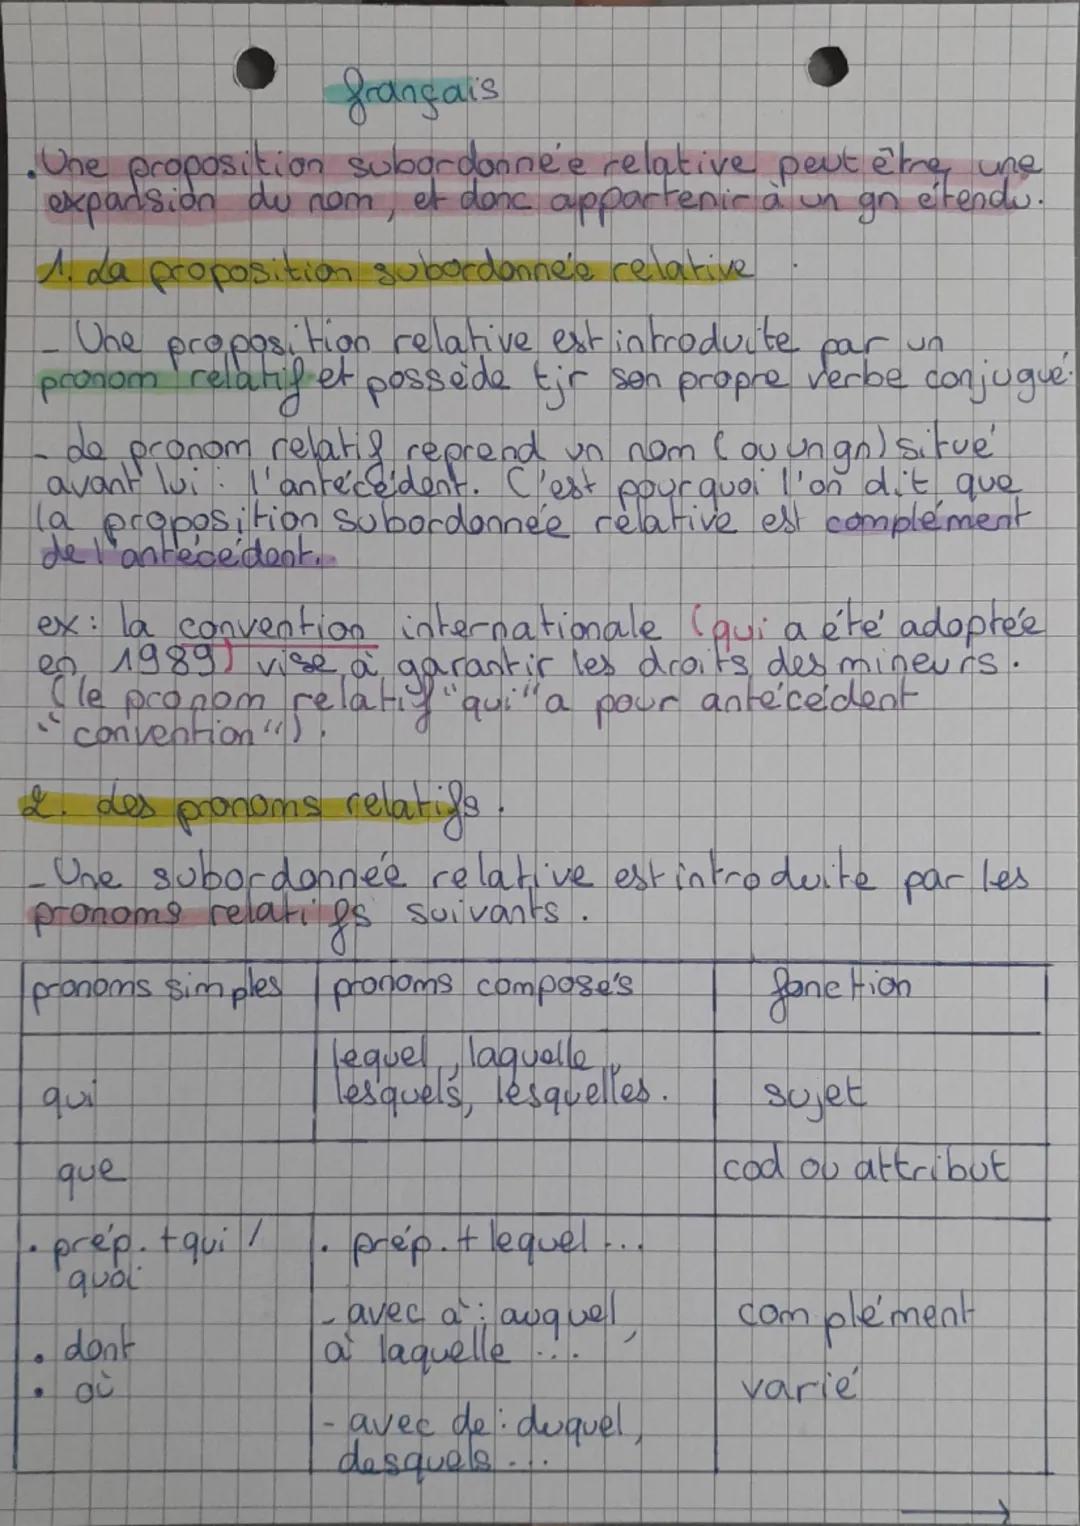 français
. Une proposition subordonnée relative peut être une
expansion du nom, et donc appartenir à un gn étendu.
1. La proposition subordonnée relative.
- Une proposition relative est introduite par un
pronom relatif et possède tjr son propre verbe conjugué.
- Le pronom relatif reprend un nom (ou un gn) situé
avant lui : l'antécédent. C'est pourquoi l'on dit que
la proposition subordonnée relative est complément
de l'antécédent.
ex: la convention internationale (qui a été adoptée
en 1989) vise à garantir les droits des mineurs.
(le pronom relatif "qui" a pour antécédent
"convention").
2. Les pronoms relatifs.
- Une subordonnée relative est introduite par les
pronoms relatifs suivants.
pronoms simples pronoms composés fonction
lequel, laquelle,
qui lesquels, lesquelles. sujet
que cod ou attribut
. prép. + qui / . prép. + lequel...
quoi
- avec à : auquel, complément
. dont à laquelle ...
. où varié
- avec de : duquel,
desquels ...
→